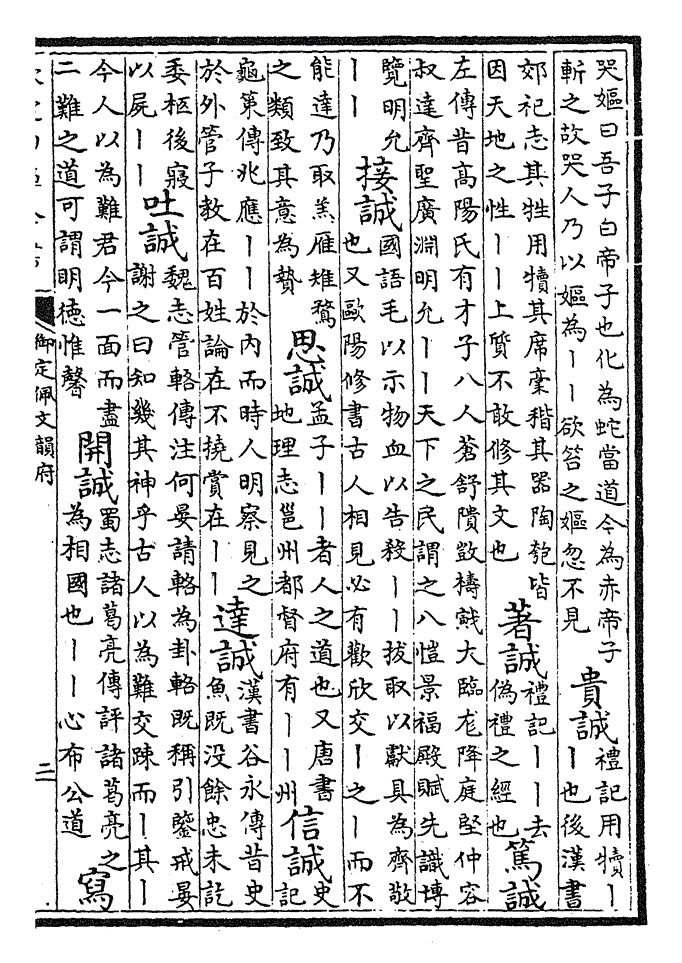 哭嫗曰吾子白帝子也化為蛇當道今為赤帝子
斬之故哭人乃以嫗為丨丨欲笞之嫗忽不見
貴誠
禮記用犢丨
丨也後漢書
郊祀志其牲用犢其席藁稭其器陶匏皆
因天地之性丨丨上質不敢修其文也
著誠
禮記丨丨去
偽禮之經也
篤誠
左傳昔高陽氏有才子八人蒼舒隤敳檮戭大臨尨降庭堅仲容
叔達齊聖廣淵明允丨丨天下之民謂之八愷景福殿賦先識博
覽明允
丨丨
接誠
國語毛以示物血以告殺丨丨拔取以獻具為齊敬
也又歐陽修書古人相見必有歡欣交丨之丨而不
能達乃取羔雁雉鶩
之類致其意為贄
思誠
孟子丨丨者人之道也又唐書
地理志邕州都督府有丨丨州
信誠
史
記
龜策傳兆應丨丨於內而時人明察見之
於外管子教在百姓論在不撓賞在丨丨
達誠
漢書谷永傳昔史
魚既没餘忠未訖
委柩後寢
以屍丨丨
吐誠
魏志管輅傳注何晏請輅為卦輅既稱引鑒戒晏
謝之曰知幾其神乎古人以為難交疎而丨其丨
今人以為難君今一面而盡
二難之道可謂明德惟馨
開誠
蜀志諸葛亮傳評諸葛亮之
為相國也丨丨心布公道
寫
御定佩文韻府
二